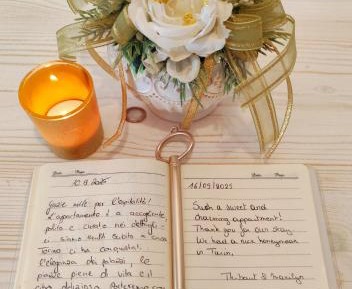 10.9.2025
Grazie mille per l'ospitalità!
L'appartamento è accogliente
pulito e curato nei dettagli
ci siamo sentiti subito a casa
Torino ci ha conquistati
l'eleganza dei palazzi, le
piazze piene di vita e il
cibo delizioso
16/09/2025
Such a sweet and
charming appartment!
Thank you for our stay.
We had a nice honeymoon
in Turin,
Thibaut & Marilyn